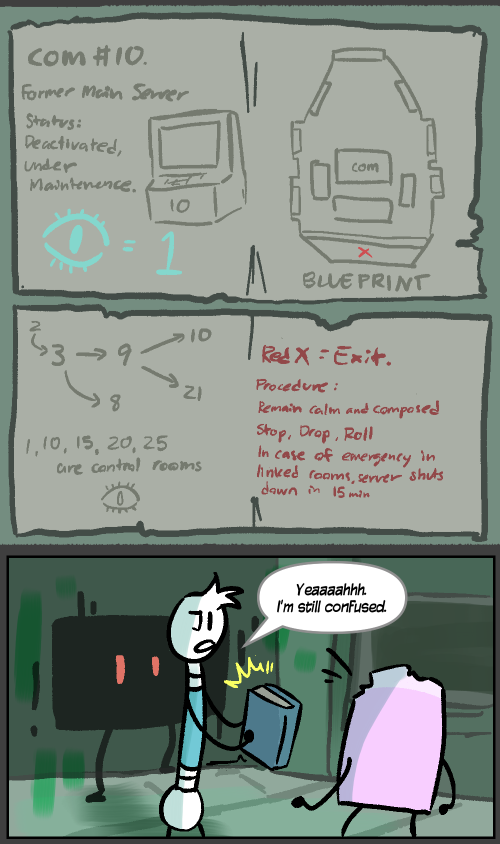 com #10.
Former Main Server
Status:
Deactivated,
under
Maintenence.
10
= 1
com
X
BLUEPRINT
2
3 → 9
10
21
8
1, 10, 15, 20, 25
are control rooms
Red X = Exit.
Procedure:
Remain calm and composed
Stop, Drop, Roll
In case of emergency in
linked rooms, server shuts
down in 15 min
Yeaaaahhh.
I'm still confused.